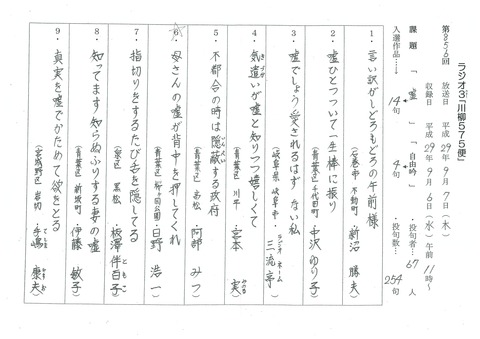 ラジオ3「川柳575便」
第356回 放送日 平成29年9月7日(木)
収録日 平成29年9月6日(水)午前11時〜
課題「嘘」「自由吟」・投句者…67人
入選作品……→14句 4句 ・投句数…254句
1.言い訳がしどろもどろの午前様
(石巻市 不動町)新沼 勝夫
2.嘘ひとつついて一生棒に振り
(青葉区 千代田町)中沢ゆり子
3.嘘でしょう愛されるはずない私
(岐阜県 岐阜市・ラジオネーム 三流亭)
4.気遣いが嘘と知りつつ嬉しくて
(青葉区 川平)宮本 実
5.不都合の時は隠蔽する政府
(青葉区 高松)阿部 みつ
6.母さんの嘘が背中を押してくれ
(青葉区 桜ヶ岡公園)日野 浩一
7.指切りをするたび舌を隠してる
(泉区 黒松)板澤伴百子
8.知ってます知らぬふりする妻の嘘
(青葉区 新坂町)伊藤 敏子
9.真実を嘘でかためて欲をとる
(宮城野区 岩切)手嶋 康夫